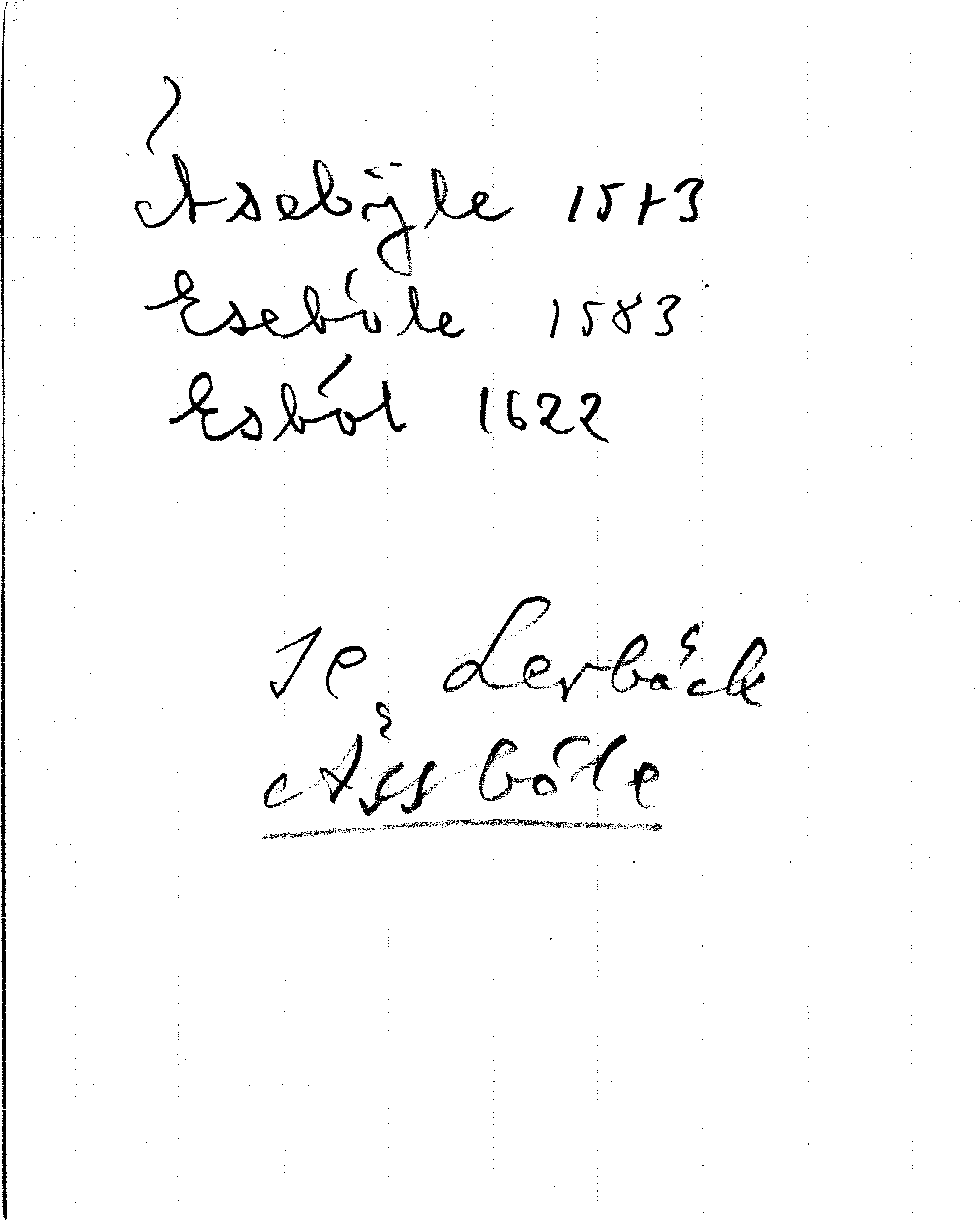 Äsebÿle 1573
Eseböle 1583
Esböl 1622
Se Lerbäck
Ässböle